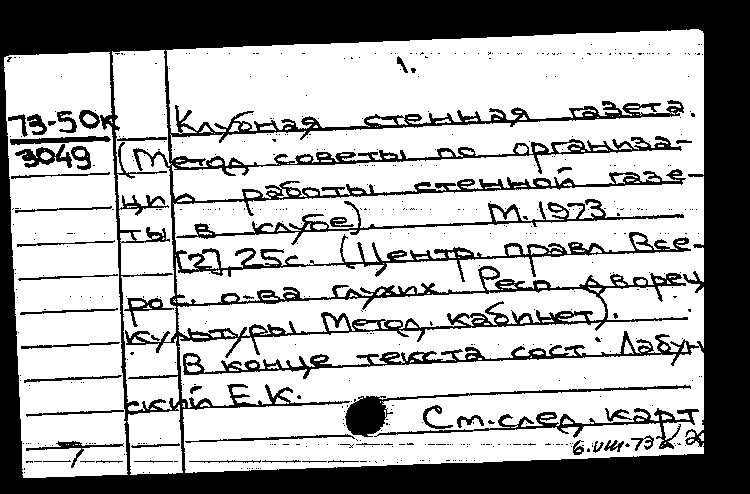 1.
73-50к Клубная стенная газета.
3049 (Метод. советы по организа-
ции работы стенной газе-
ты в клубе). М., 1973.
[2], 25с. (Центр. правл. Все-
рос. о-ва глухих. Респ. дворец
культуры. Метод. кабинет).
В конце текста сост.: Лабун
ский Е.К.
См. след. карт.
7 6.VIII.73